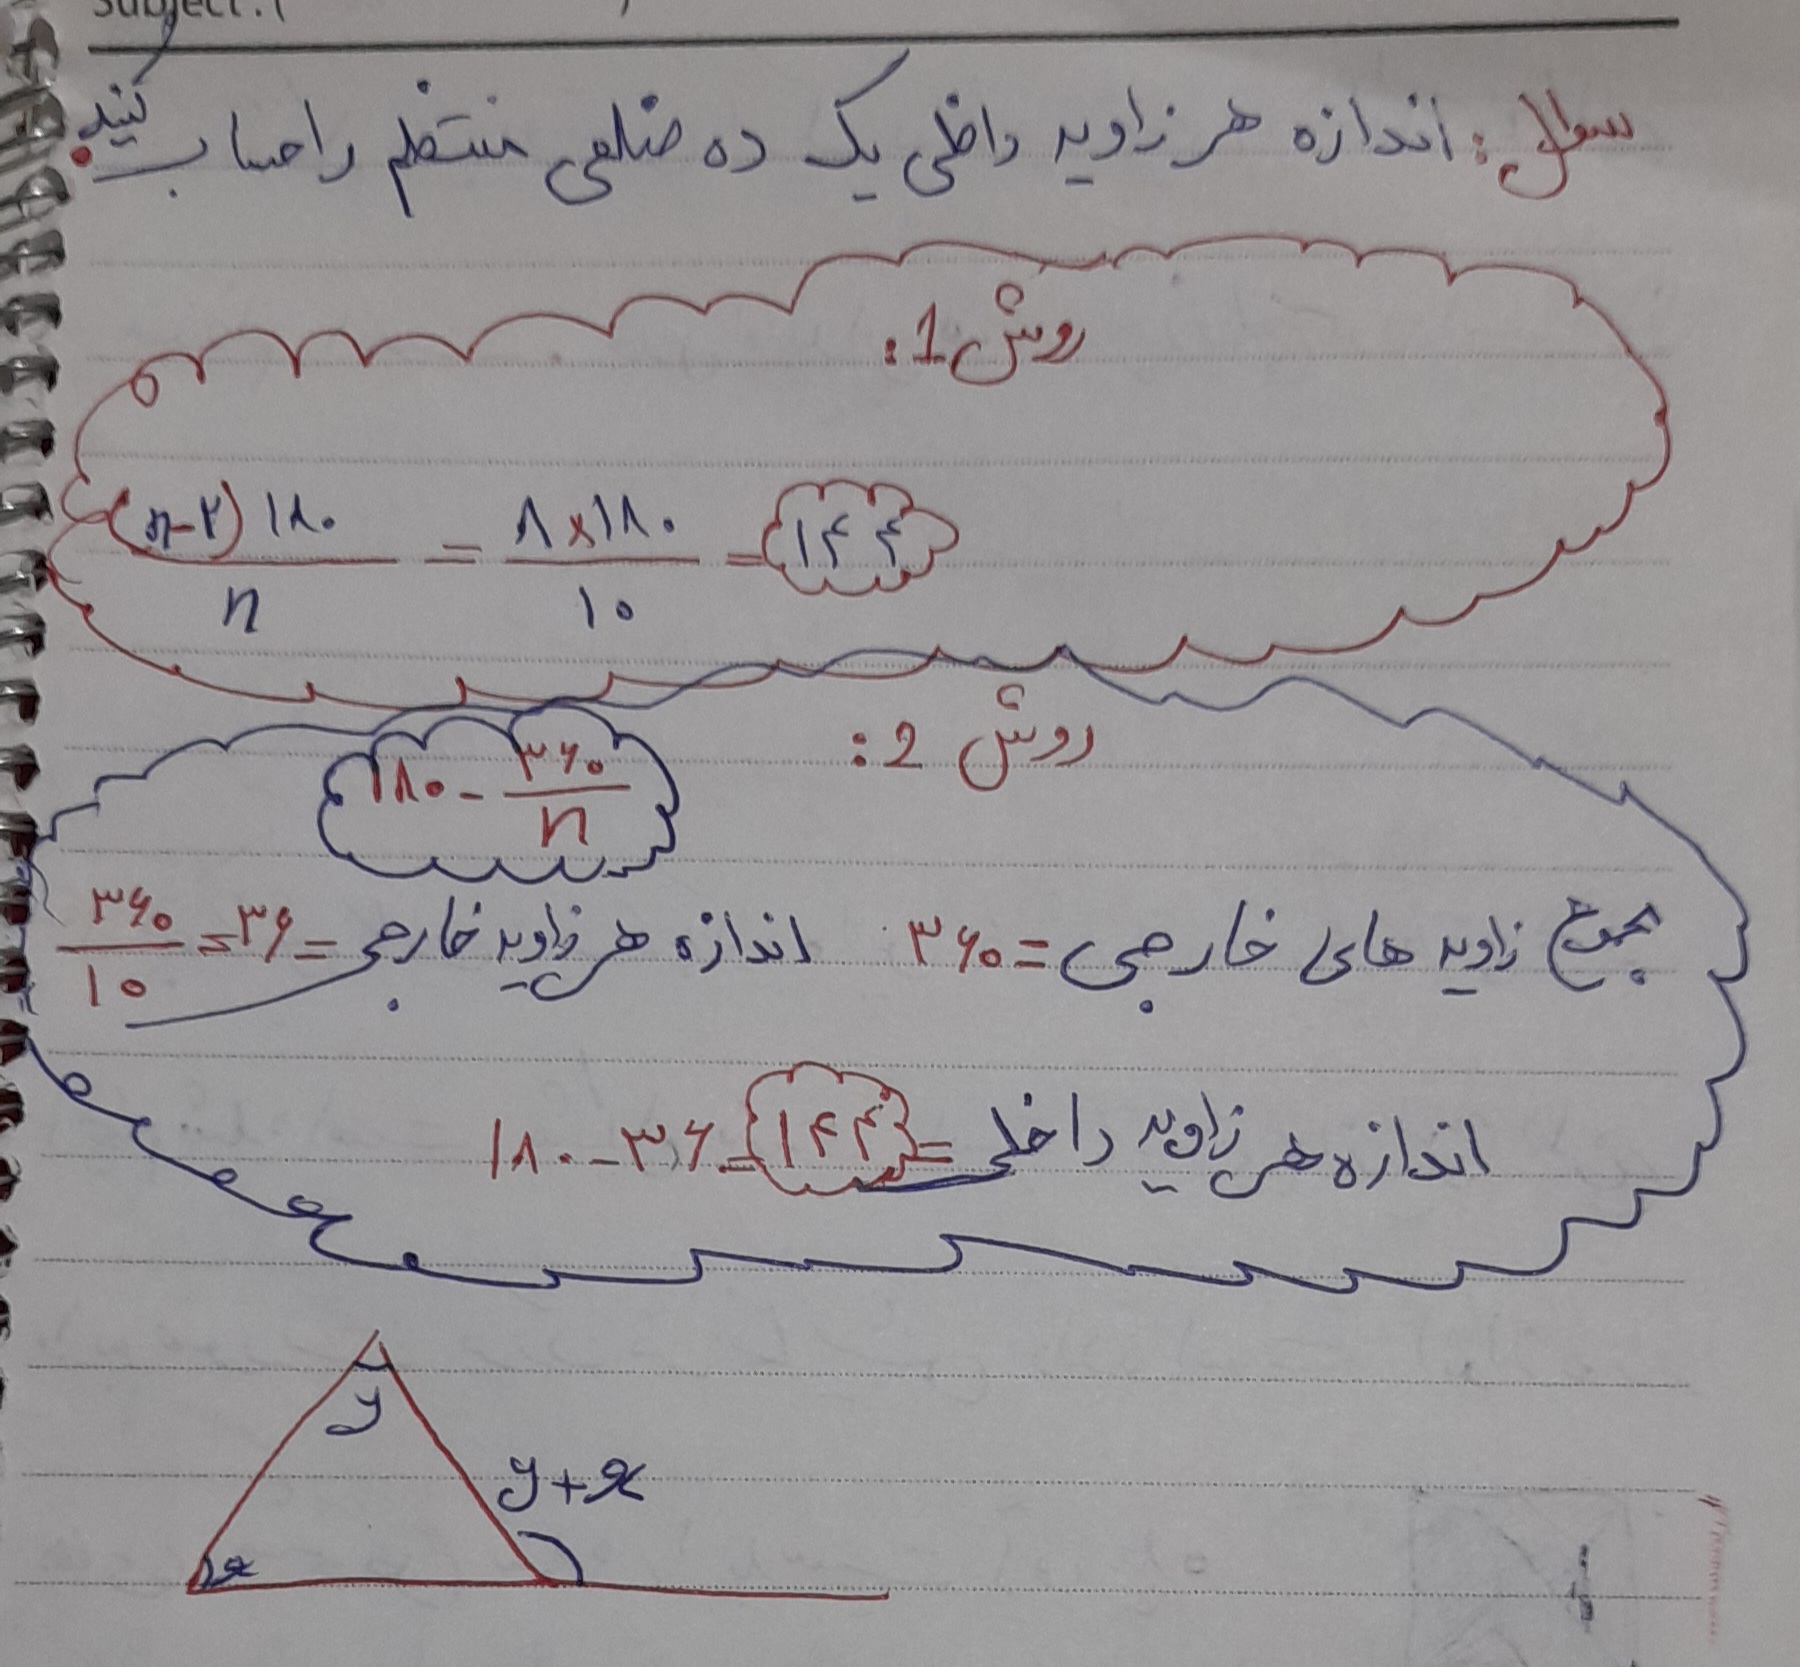 Subject:
سوال: اندازه هر زاویه داخلی یک ده ضلعی منتظم را حساب کنید.
روش 1:
(n-۲)۱۸۰/n = ۸×۱۸۰/۱۰ = ۱۴۴
روش 2:
۱۸۰ - ۳۶۰/n
مجموع زاویه های خارجی = ۳۶۰ اندازه هر زاویه خارجی = ۳۶ = ۳۶۰/۱۰
اندازه هر زاویه داخلی = ۱۴۴ = ۱۸۰-۳۶
y
y+x
x